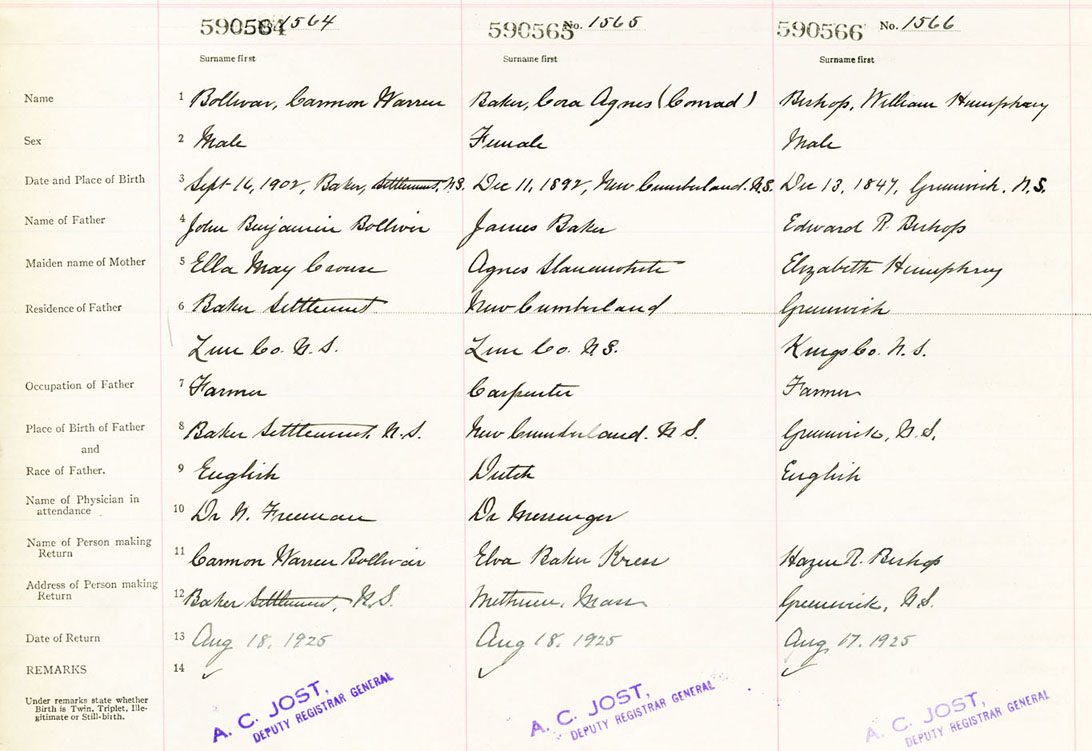 590564 No. 1564 590565 No. 1565 590566 No. 1566
Surname first Surname first Surname first
Name 1 Bollivar, Carmon Warren Baker, Cora Agnes (Conrad) Bishop, William Humphrey
Sex 2 Male Female Male
Date and Place of Birth 3 Sept 16, 1902, Baker, Settlement, N.S. Dec 11, 1892, New Cumberland. N.S. Dec 13, 1847, Greenwich. N.S.
Name of Father 4 John Benjamin Bolliver James Baker Edward R. Bishop
Maiden name of Mother 5 Ella May Crouse Agnes Slauenwhite Elizabeth Humphrey
Residence of Father 6 Baker Settlement New Cumberland Greenwich
Lun Co. N.S. Lun Co. N.S. Kings Co. N.S.
Occupation of Father 7 Farmer Carpenter Farmer
Place of Birth of Father 8 Baker Settlement, N.S. New Cumberland. N.S. Greenwich, N.S.
and
Race of Father. 9 English Dutch English
Name of Physician in
attendance 10 Dr N. Freeman Dr Messenger
Name of Person making
Return 11 Carmon Warren Bollivar Elva Baker Hazen R. Bishop
Address of Person making
Return 12 Baker Settlement, N.S. Methuen, Mass Greenwich, N.S.
Date of Return 13 Aug 18, 1925 Aug 18, 1925 Aug 17, 1925
REMARKS 14
Under remarks state whether
Birth is Twin, Triplet, Ille-
gitimate or Still-birth.
A. C. JOST,
DEPUTY REGISTRAR GENERAL
A. C. JOST,
DEPUTY REGISTRAR GENERAL
A. C. JOST,
DEPUTY REGISTRAR GENERAL